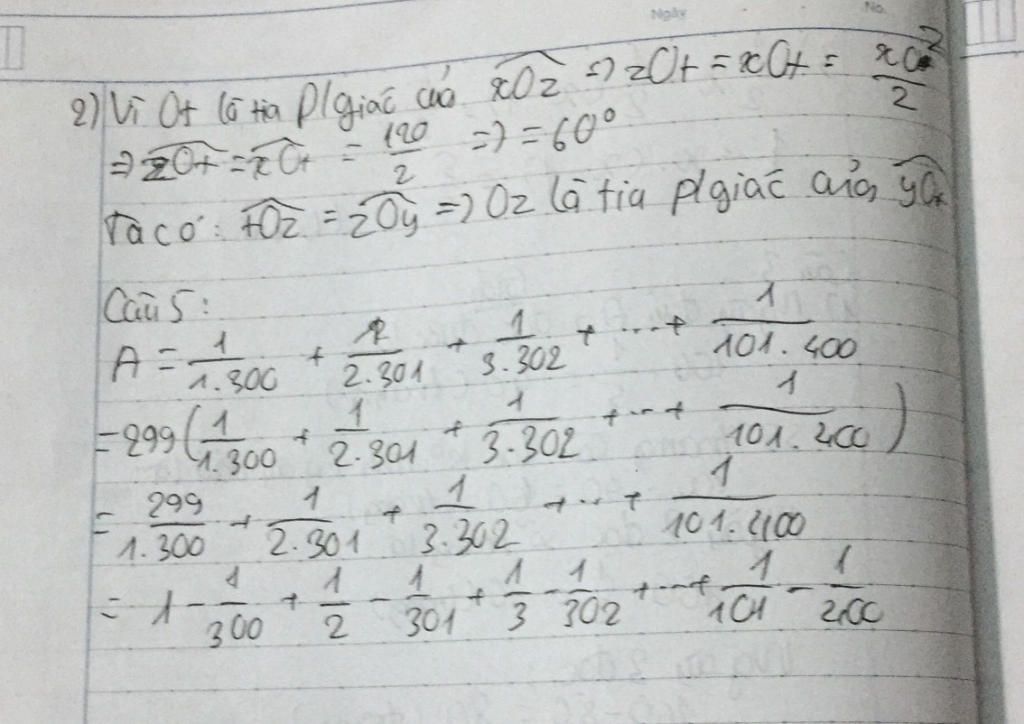 Ngày No.
2) Vì Ot là tia p/giác của xOz => zOt = xOt = xOz/2
=> zOt = xOt = 120/2 => = 60°
Ta có: tOz = zOy => Oz là tia p/giác của yOt
Câu 5:
A = 1/1.300 + 1/2.301 + 1/3.302 + ... + 1/101.400
= 299(1/1.300 + 1/2.301 + 1/3.302 + ... + 1/101.400)
= 299/1.300 + 1/2.301 + 1/3.302 + ... + 1/101.400
= 1 - 1/300 + 1/2 - 1/301 + 1/3 - 1/302 + ... + 1/101 - 1/400